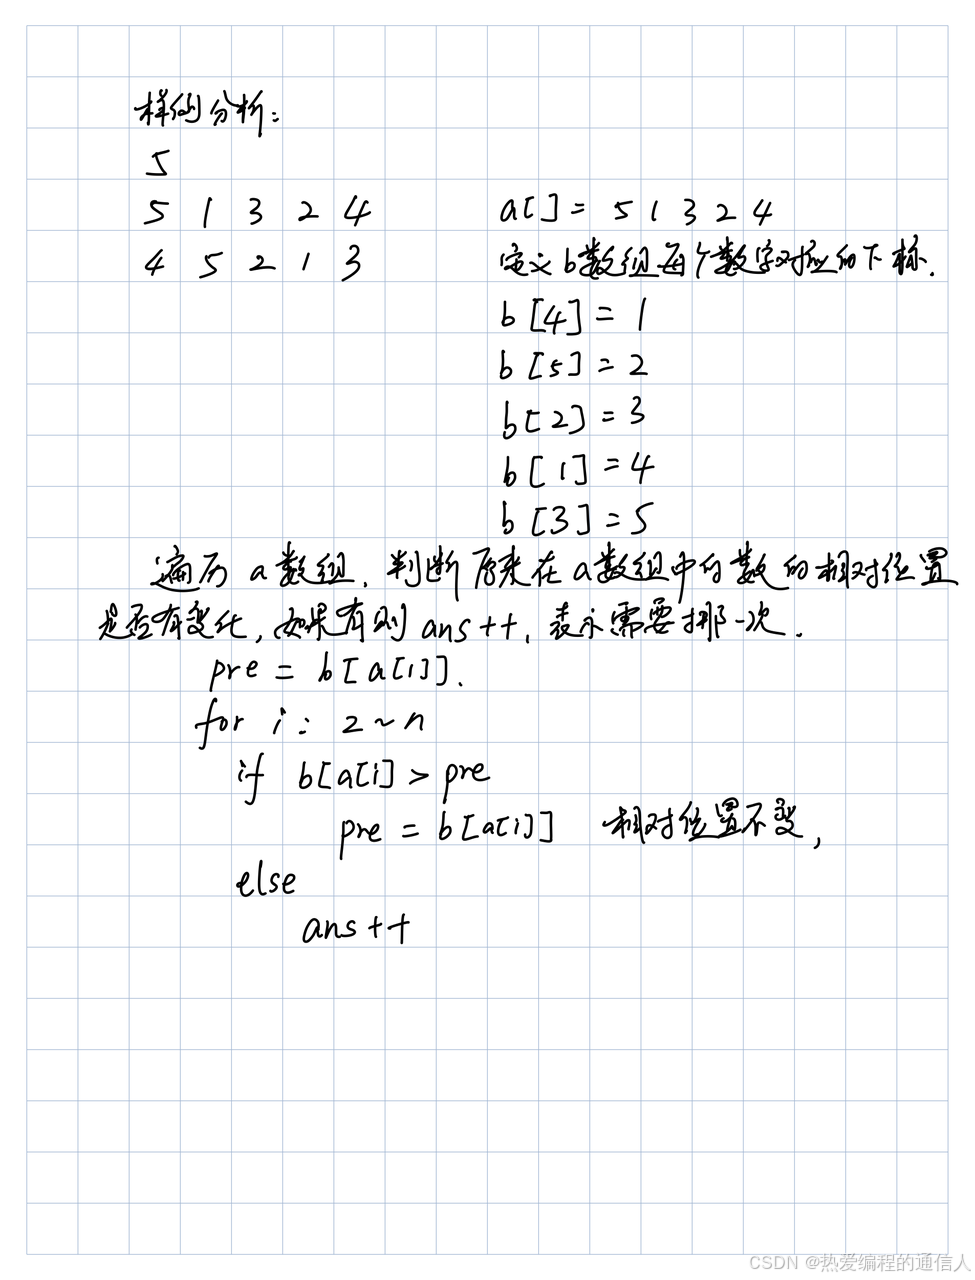 样例分析：
5
5 1 3 2 4
4 5 2 1 3
a[] = 5 1 3 2 4
定义b数组每个数字对应的下标.
b[4] = 1
b[5] = 2
b[2] = 3
b[1] = 4
b[3] = 5
遍历a数组, 判断原来在a数组中的数的相对位置
是否有变化, 如果有则 ans++, 表示需要挪一次.
pre = b[a[1]].
for i: 2~n
if b[a[i] > pre
pre = b[a[i]] 相对位置不变,
else
ans++
CSDN @热爱编程的通信人